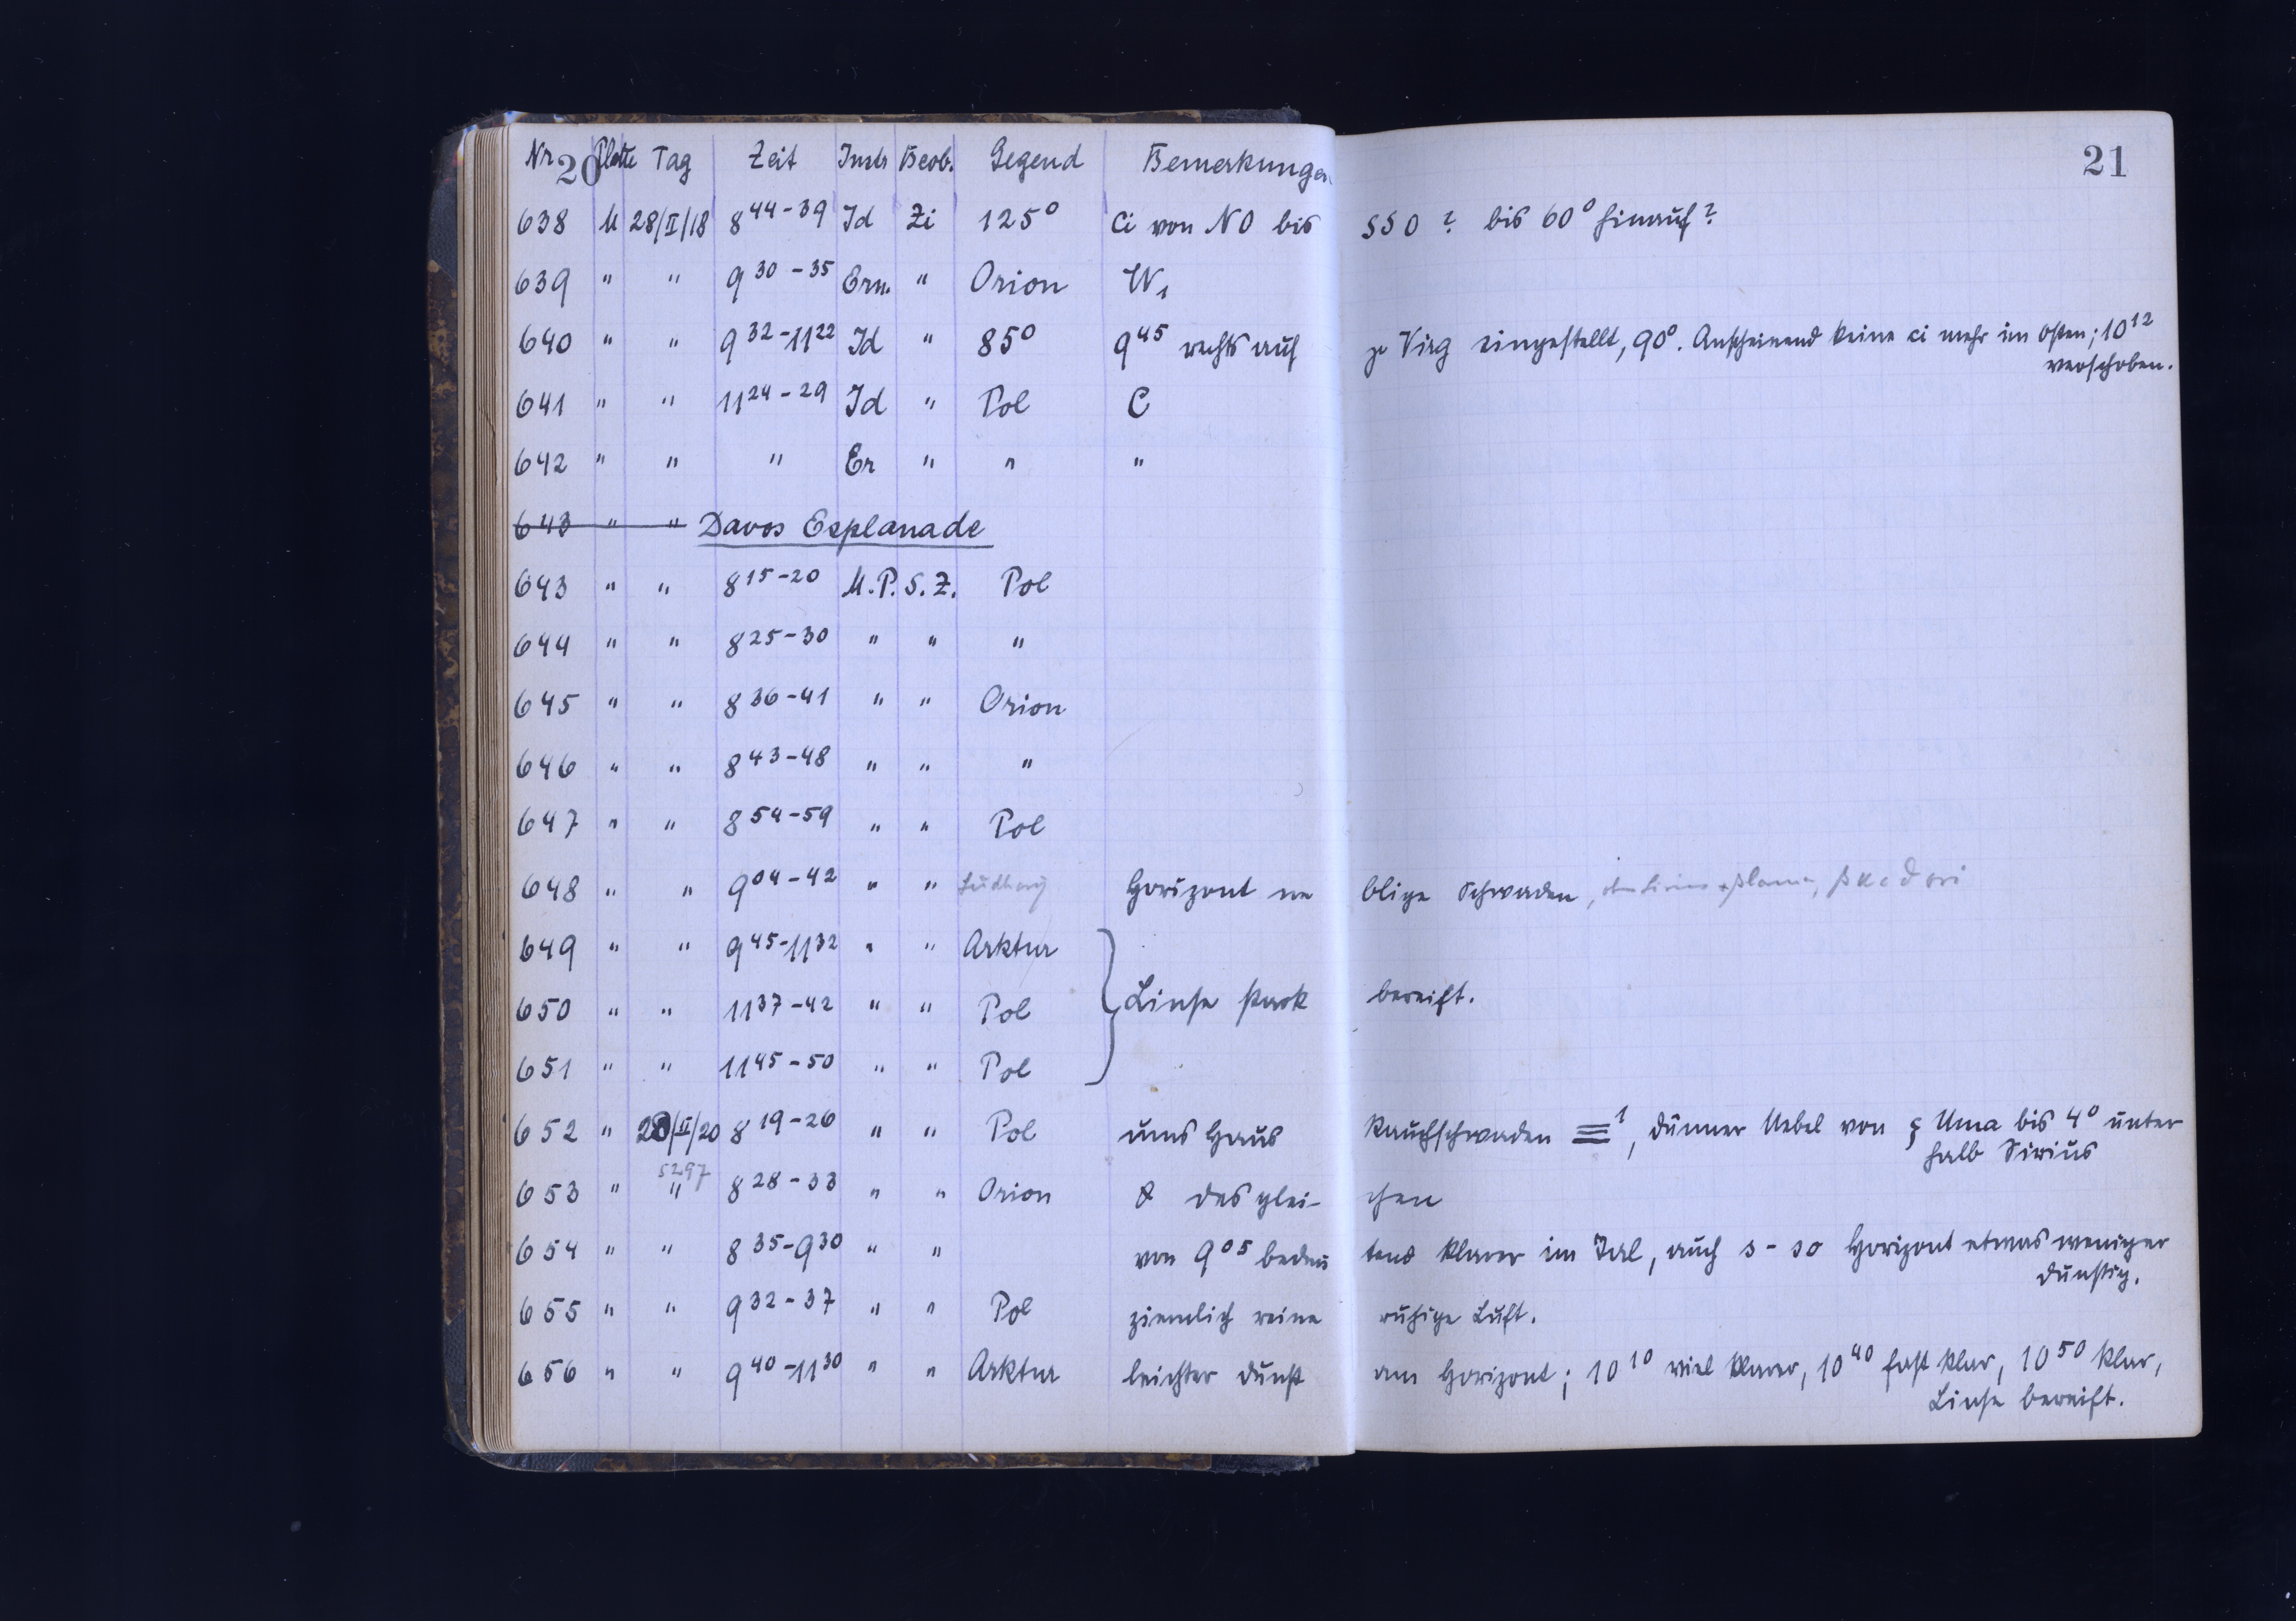 20
21
Nr Platte Tag Zeit Instr Beob. Gegend Bemerkungen
638 U 28/II/18 8 44-39 Jd Zi 125° Ci von NO bis SSO ? bis 60° hinauf?
639 " " 9 30-35 Ern. " Orion W1
640 " " 9 32-11 22 Jd " 85° 9 45 rechts auf Virg eingestellt, 90°. Anscheinend keine ci mehr im Osten; 10 12
verschoben.
641 " " 11 24-29 Jd " Pol C
642 " " " Er " " "
643 " " Davos Esplanade
643 " " 8 15-20 U.P. S.Z. Pol
644 " " 8 25-30 " " "
645 " " 8 36-41 " " Orion
646 " " 8 43-48 " " "
647 " " 8 54-59 " " Pol
648 " " 9 04-42 " " Horizont neblige Schwaden,
649 " " 9 45-11 32 " " Arktur
650 " " 11 37-42 " " Pol Linse stark bereift.
651 " " 11 45-50 " " Pol
652 " 28/II/20 8 19-26 " " Pol ums Haus Rauchschwaden ≡1, dünner Nebel von Uma bis 4° unter
halb Sirius
5297
653 " " 8 28-33 " " Orion & desgleichen
654 " " 8 35-9 30 " " von 9 05 bedeutend klarer im Tal, auch s-so Horizont etwas weniger
dunstig.
655 " " 9 32-37 " " Pol ziemlich reine ruhige Luft.
656 " " 9 40-11 30 " " Arktur leichter Dunst am Horizont; 10 10 viel klarer, 10 40 fast klar, 10 50 klar,
Linse bereift.